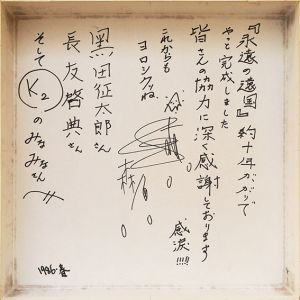 『永遠の遠国』約十年がかりで
やっと完成しました
皆さんの協力に深く感謝しております
感涙!!!!
これからも
ヨロシクね。
感
黒田征太郎さん
長友啓典さん
そして K₂ のみなみなさん
1986・春